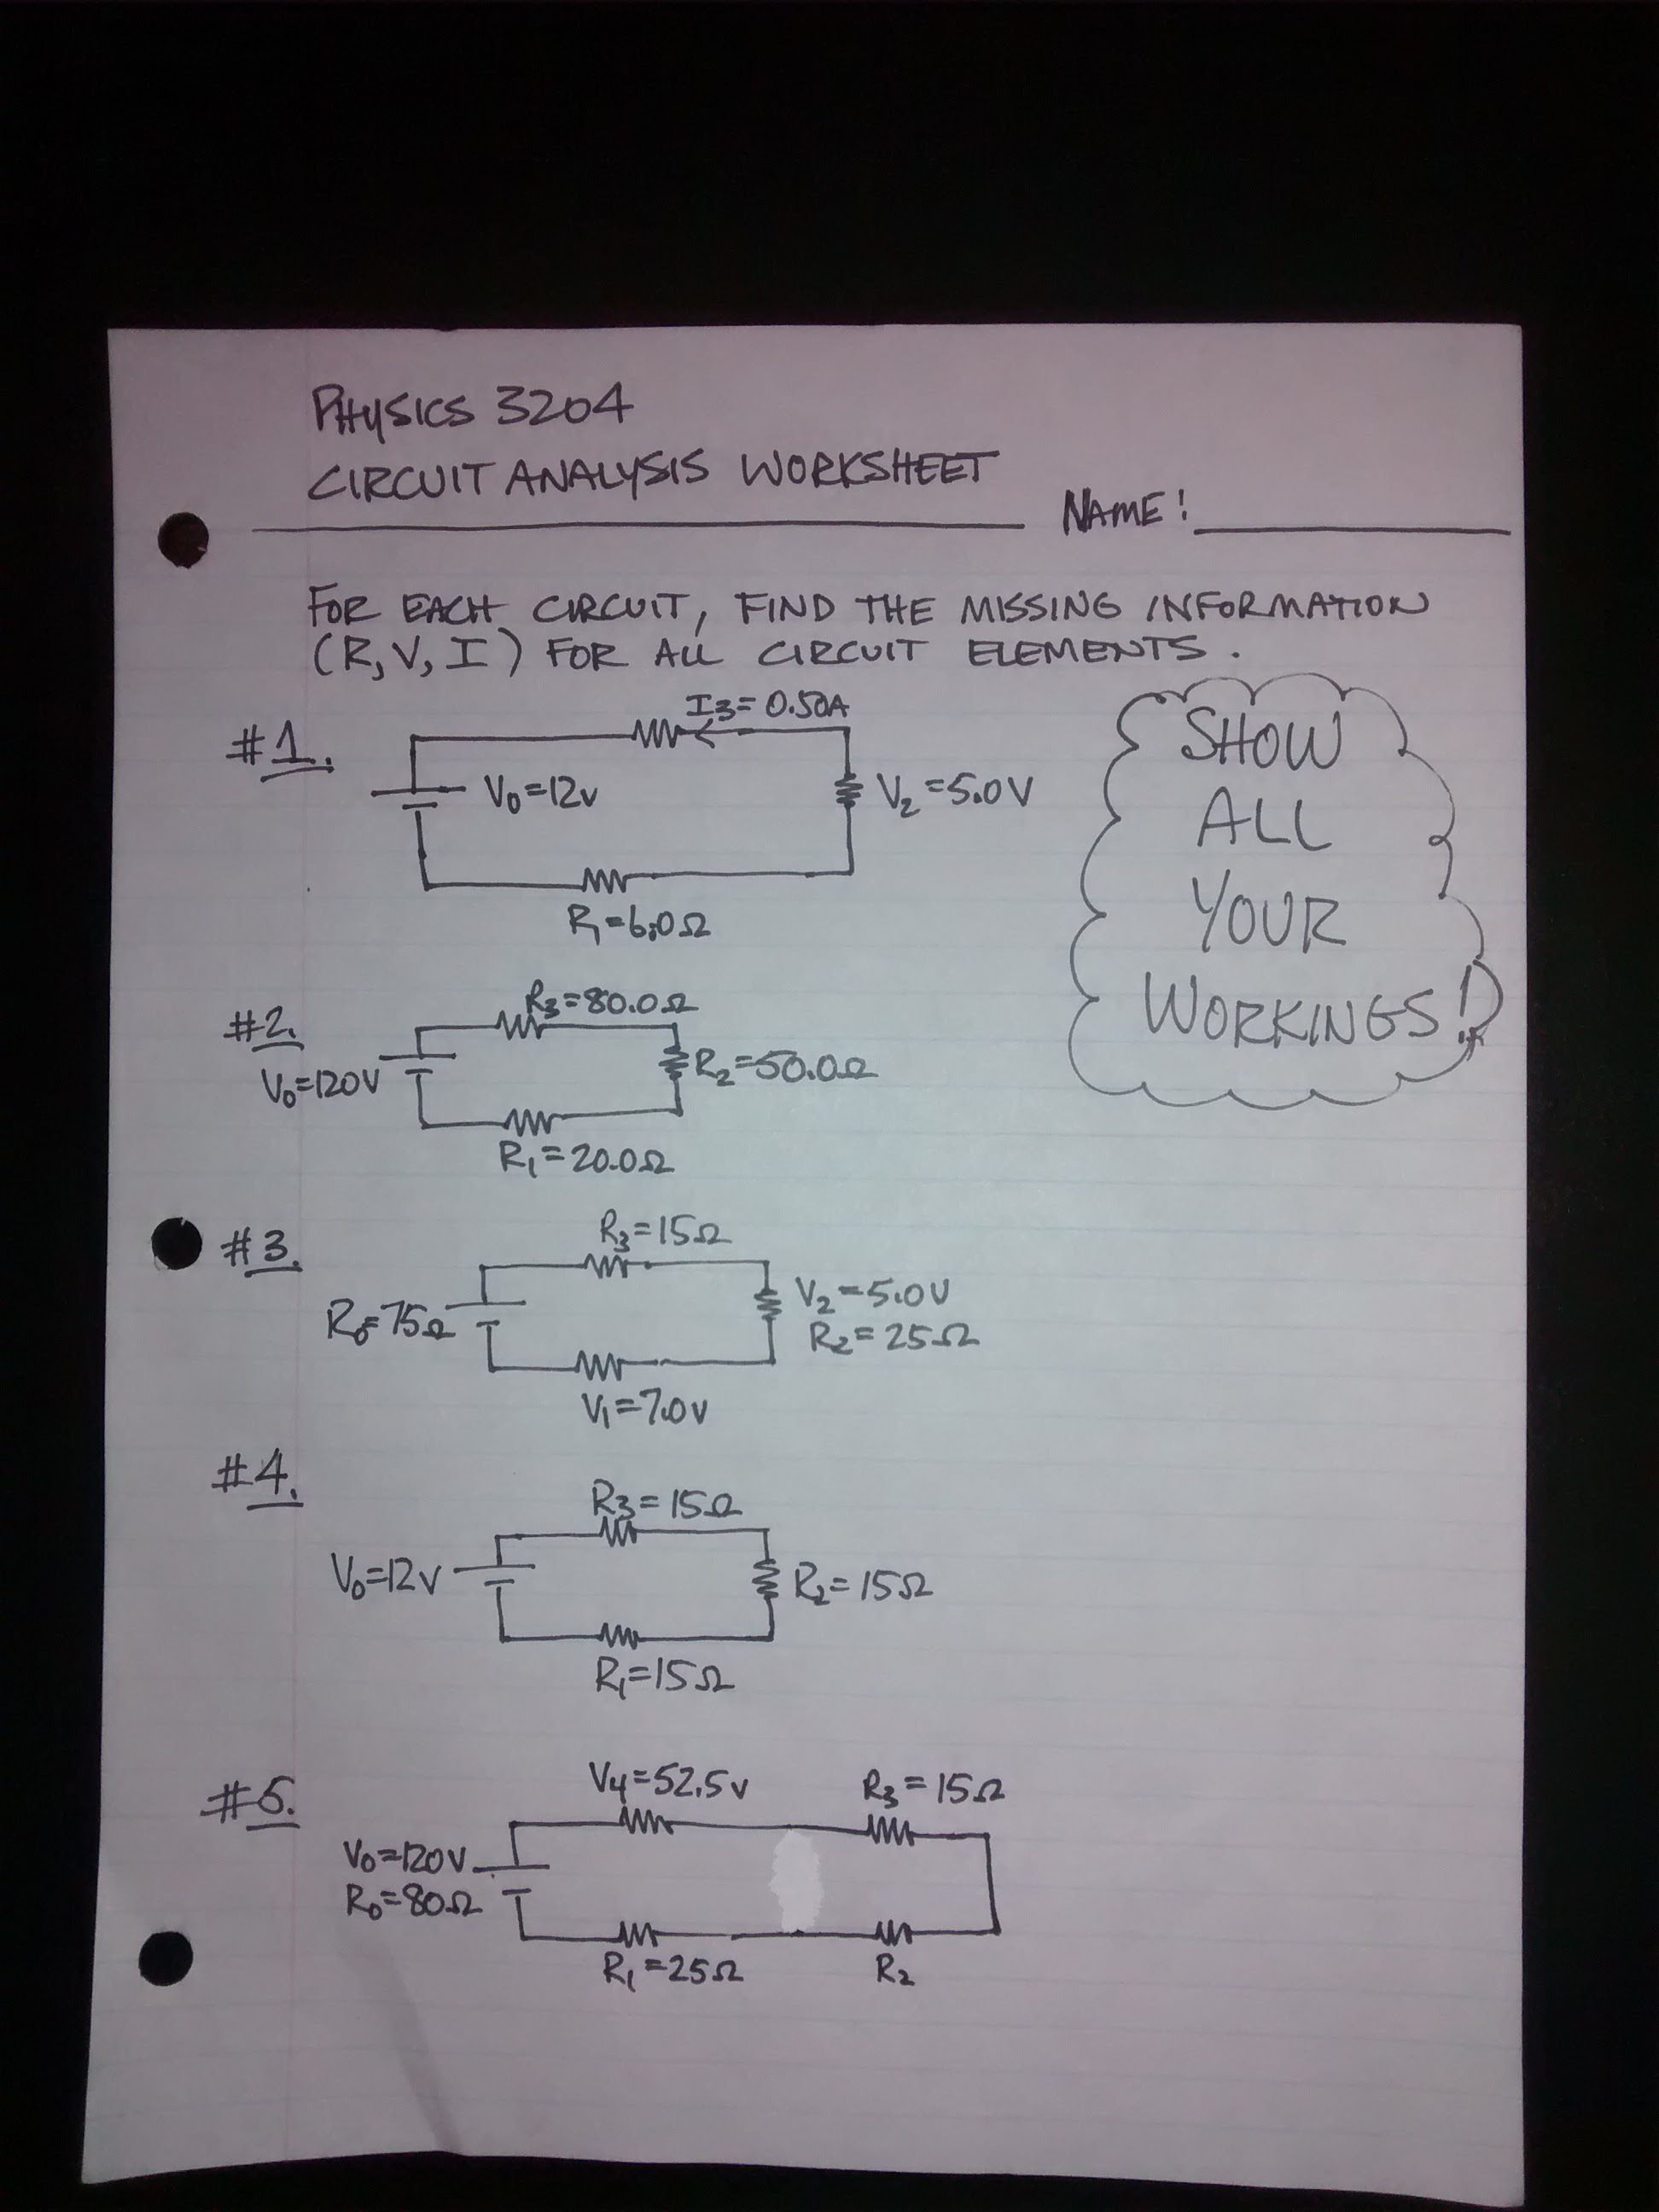 PHYSICS 3204
CIRCUIT ANALYSIS WORKSHEET
NAME:
FOR EACH CIRCUIT, FIND THE MISSING INFORMATION
(R, V, I) FOR ALL CIRCUIT ELEMENTS.
SHOW
ALL
YOUR
WORKINGS!
#1.
I₃=0.50A
V₀=12v
V₂=5.0V
R₁=6.0Ω
#2.
R₃=80.0Ω
V₀=120V
R₂=50.0Ω
R₁=20.0Ω
#3.
R₃=15Ω
R₀=75Ω
V₂=5.0V
R₂=25Ω
V₁=7.0v
#4.
R₃=15Ω
V₀=12v
R₂=15Ω
R₁=15Ω
#5.
V₄=52.5v
R₃=15Ω
V₀=120V
R₀=80Ω
R₁=25Ω
R₂